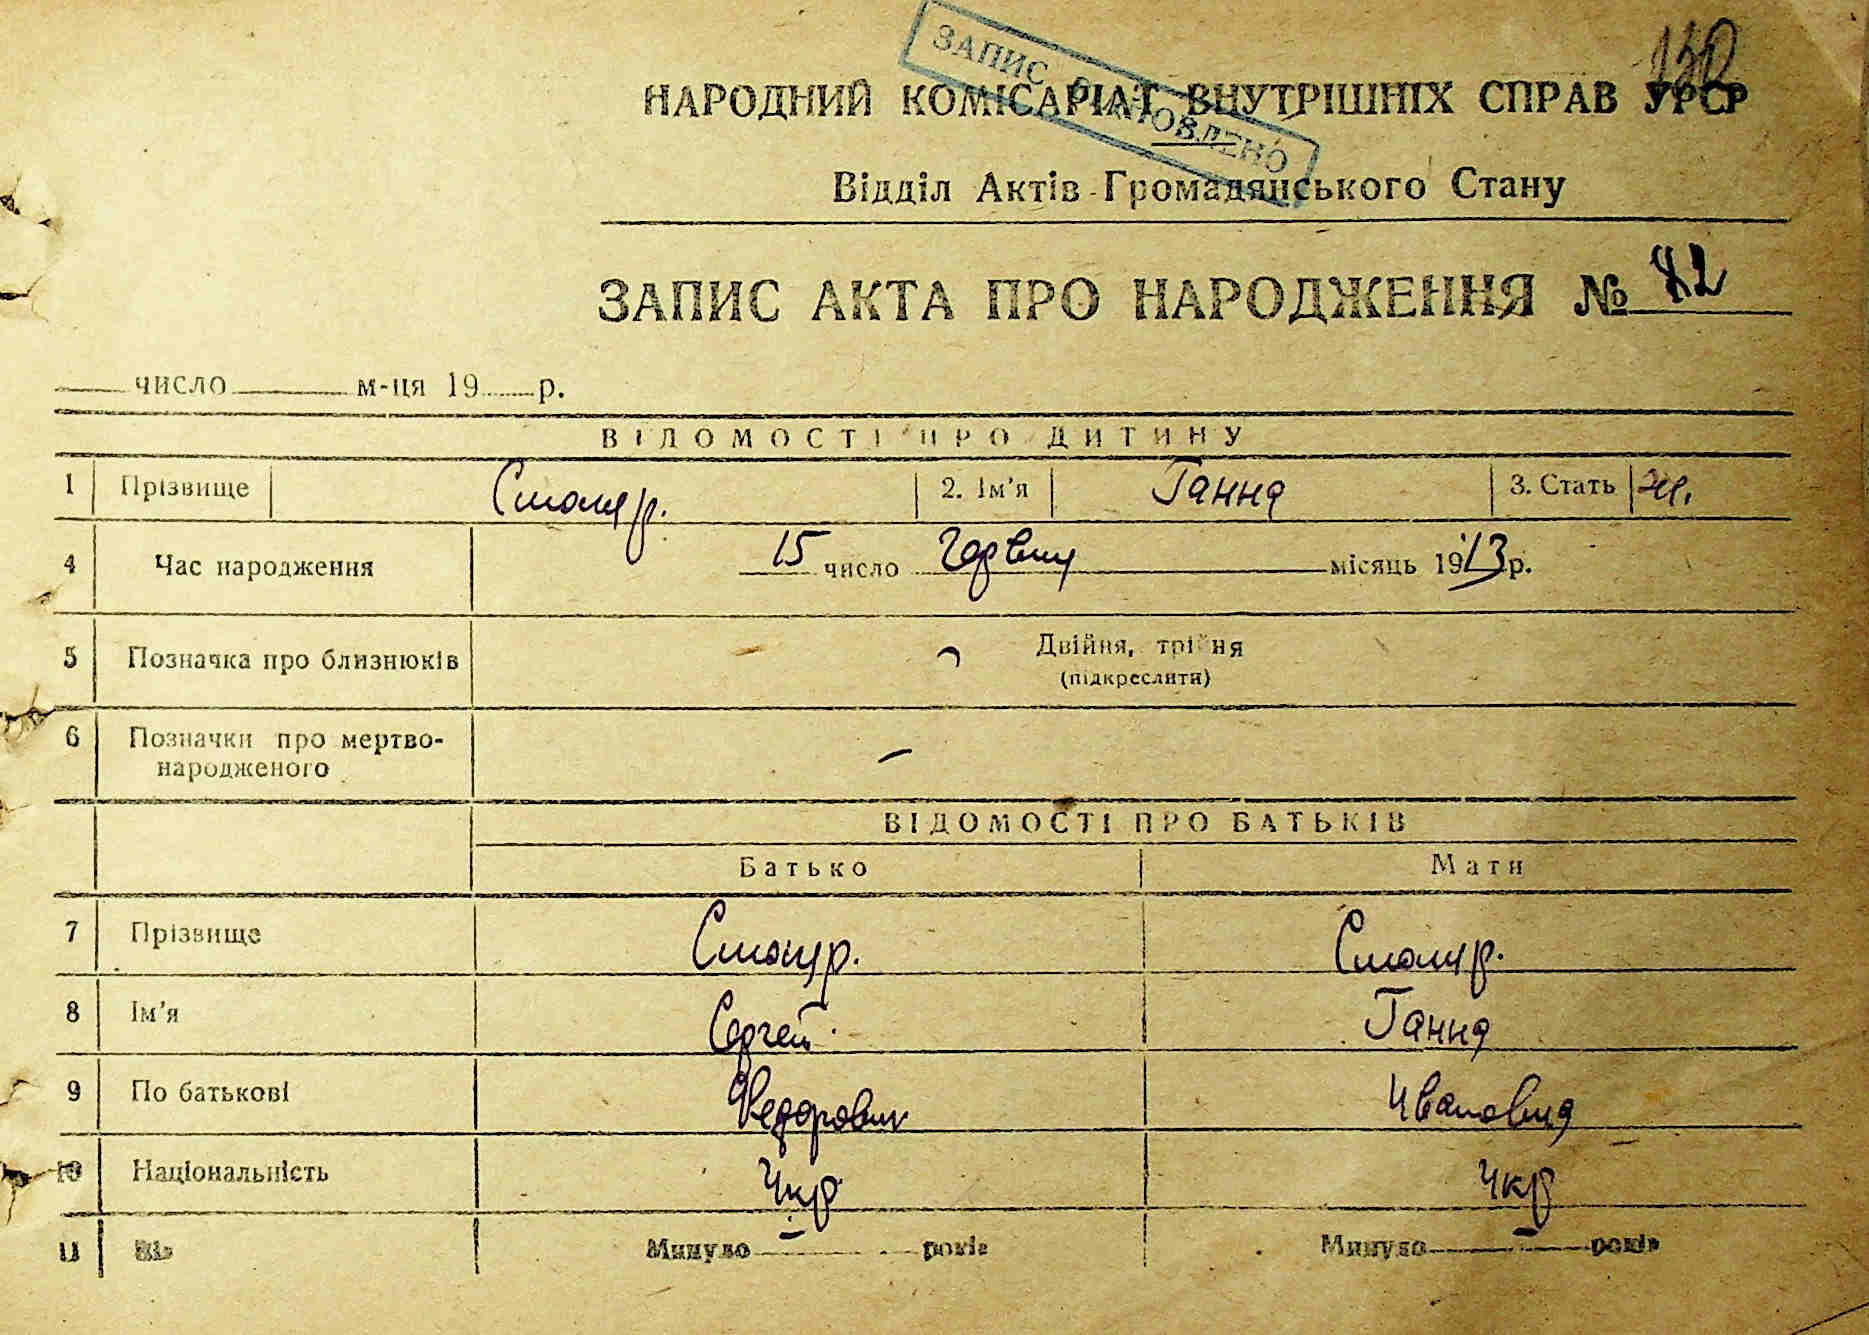 130
ЗАПИС ВІДНОВЛЕНО
НАРОДНИЙ КОМІСАРІАТ ВНУТРІШНІХ СПРАВ УРСР
Відділ Актів Громадянського Стану
ЗАПИС АКТА ПРО НАРОДЖЕННЯ № 42
число м-ця 19 р.
ВІДОМОСТІ ПРО ДИТИНУ
1 Прізвище Смоляр. 2. Ім'я Ганна 3. Стать ж.
4 Час народження 15 число Червня місяць 1913 р.
5 Позначка про близнюків - Двійня, трійня
(підкреслити)
6 Позначки про мертво-
народженого -
ВІДОМОСТІ ПРО БАТЬКІВ
Батько Мати
7 Прізвище Смоляр. Смоляр.
8 Ім'я Сергей Ганна
9 По батькові Федорович Ивановна
10 Національність Укр Укр
11 Вік Минуло - років Минуло - років